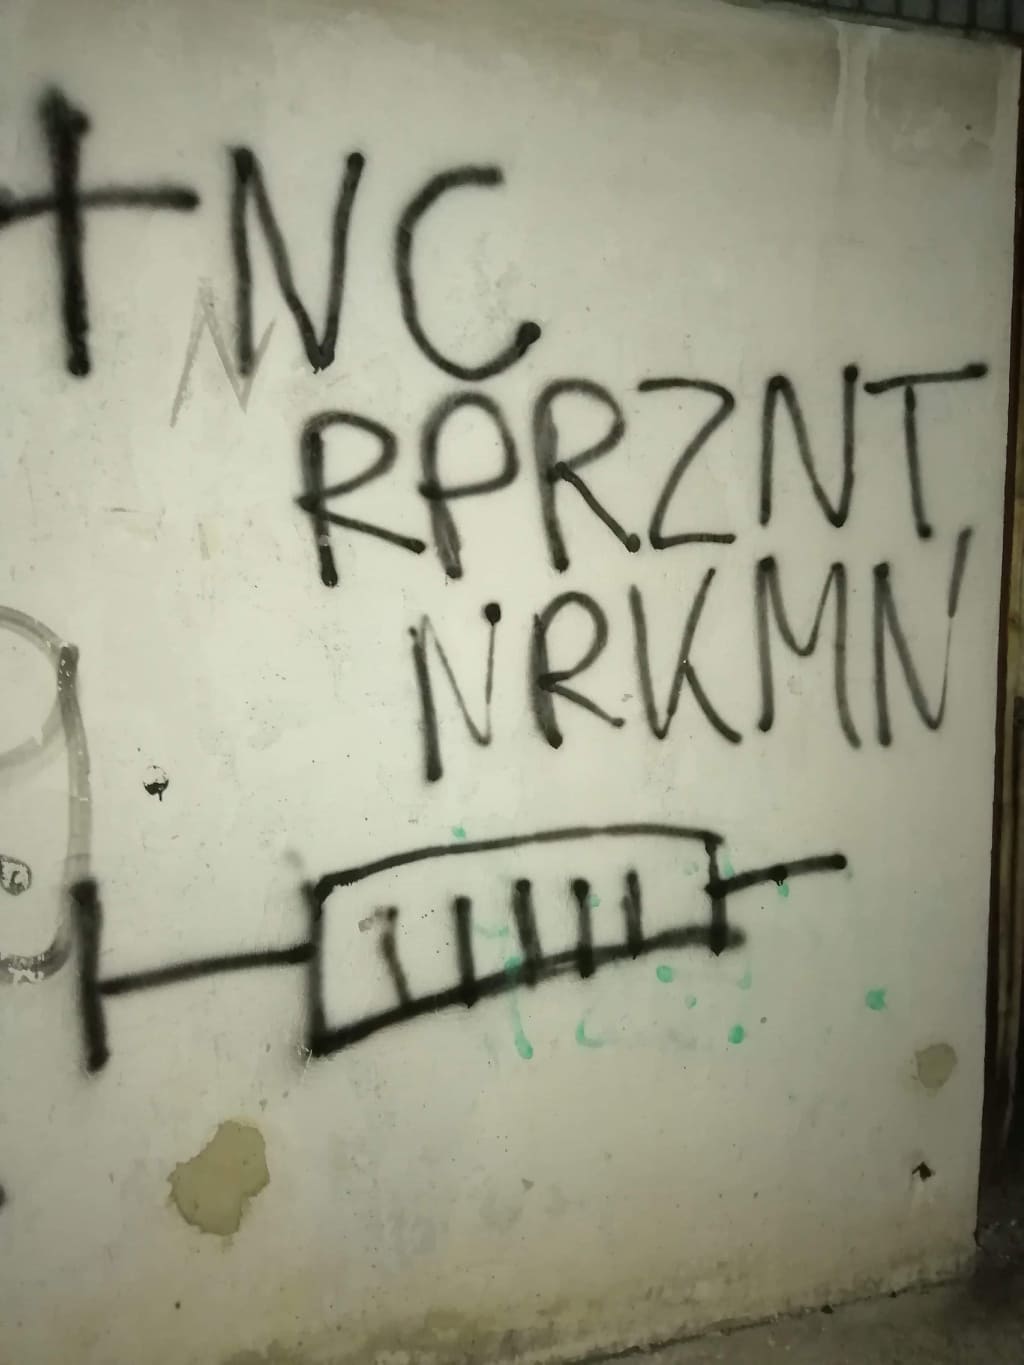 +NC
RPRZNT
NRKMN